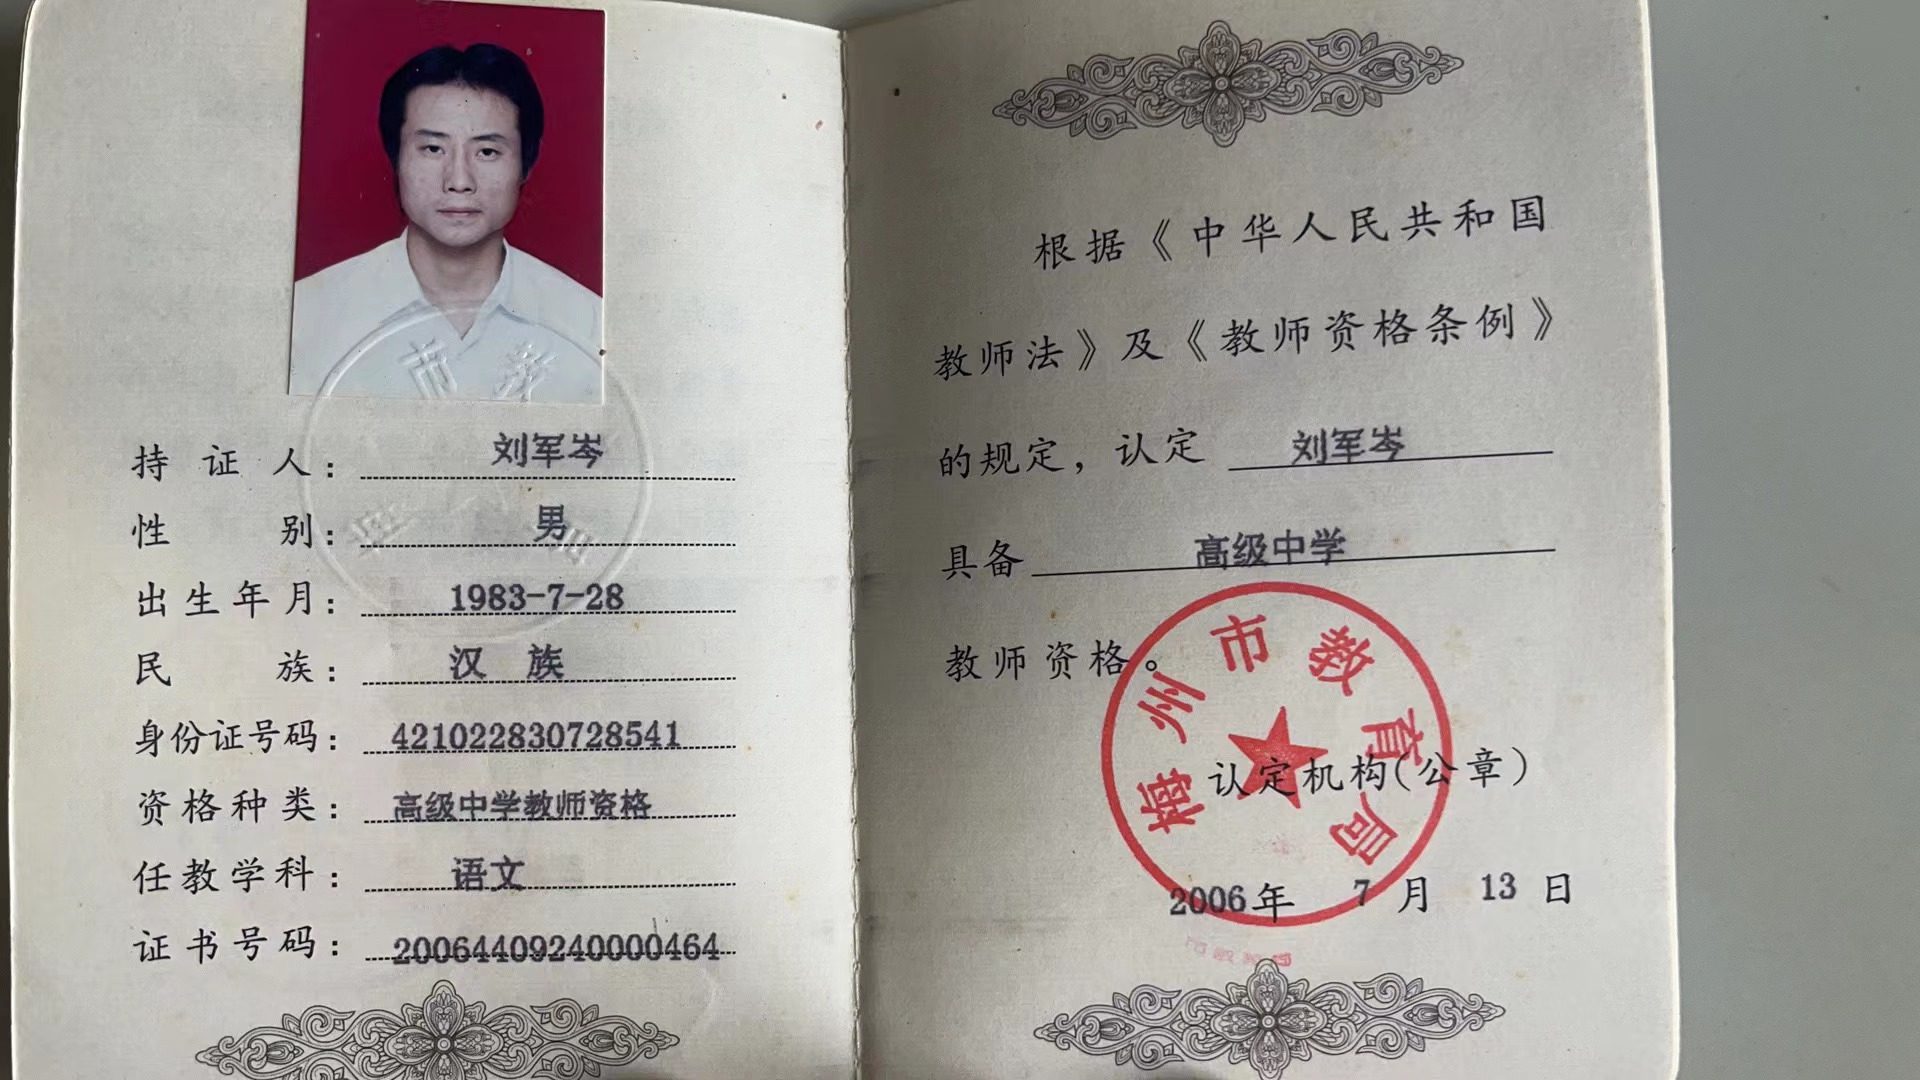 持证人：刘军岑
性别：男
出生年月：1983-7-28
民族：汉 族
身份证号码：421022830728541
资格种类：高级中学教师资格
任教学科：语文
证书号码：20064409240000464
市教
根据《中华人民共和国
教师法》及《教师资格条例》
的规定，认定 刘军岑
具备 高级中学
教师资格。
梅州市教育局
认定机构(公章)
2006年 7月 13日